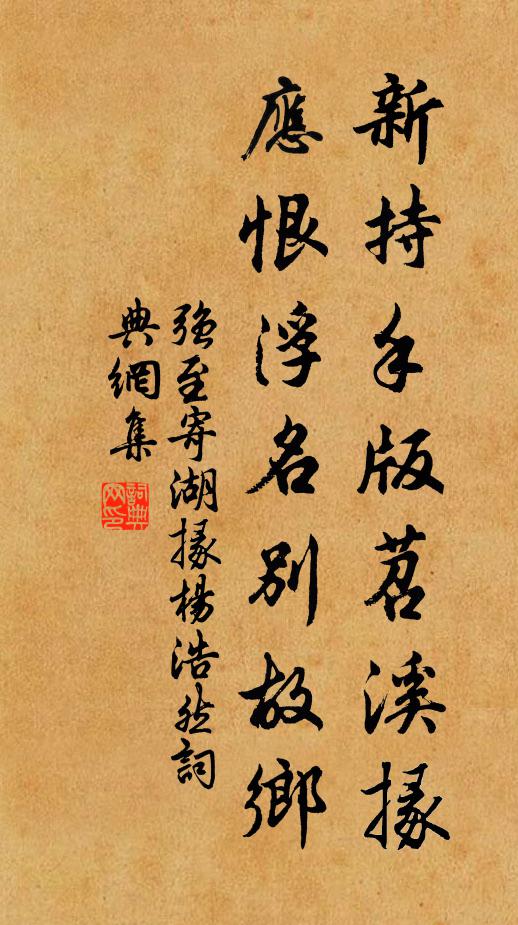 新持手版苕溪掾
應恨浮名別故鄉
强至寄湖掾楊浩然詞
典網集
詞典
网印